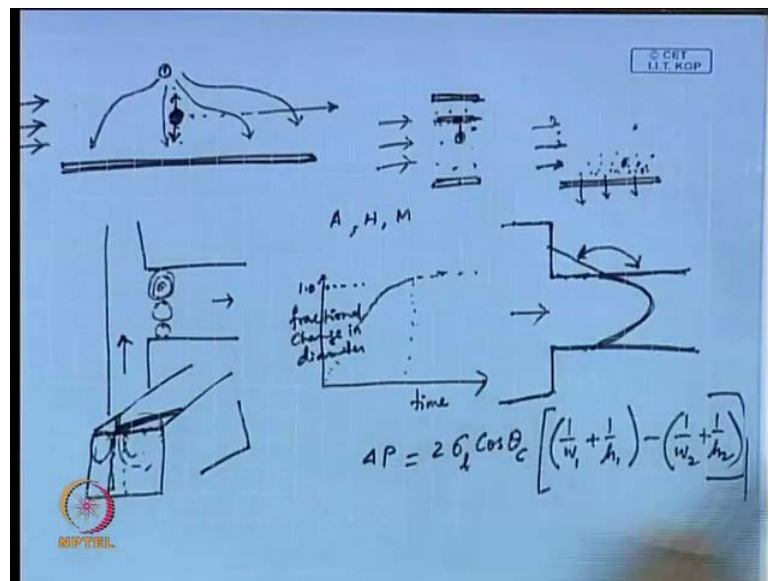 © CET
I.I.T. KGP
A, H, M
1.0
fractional
change in
diameter
time
ΔP = 2 σ_l Cos θ_c [(1/w₁ + 1/h₁) − (1/w₂ + 1/h₂)]
NPTEL